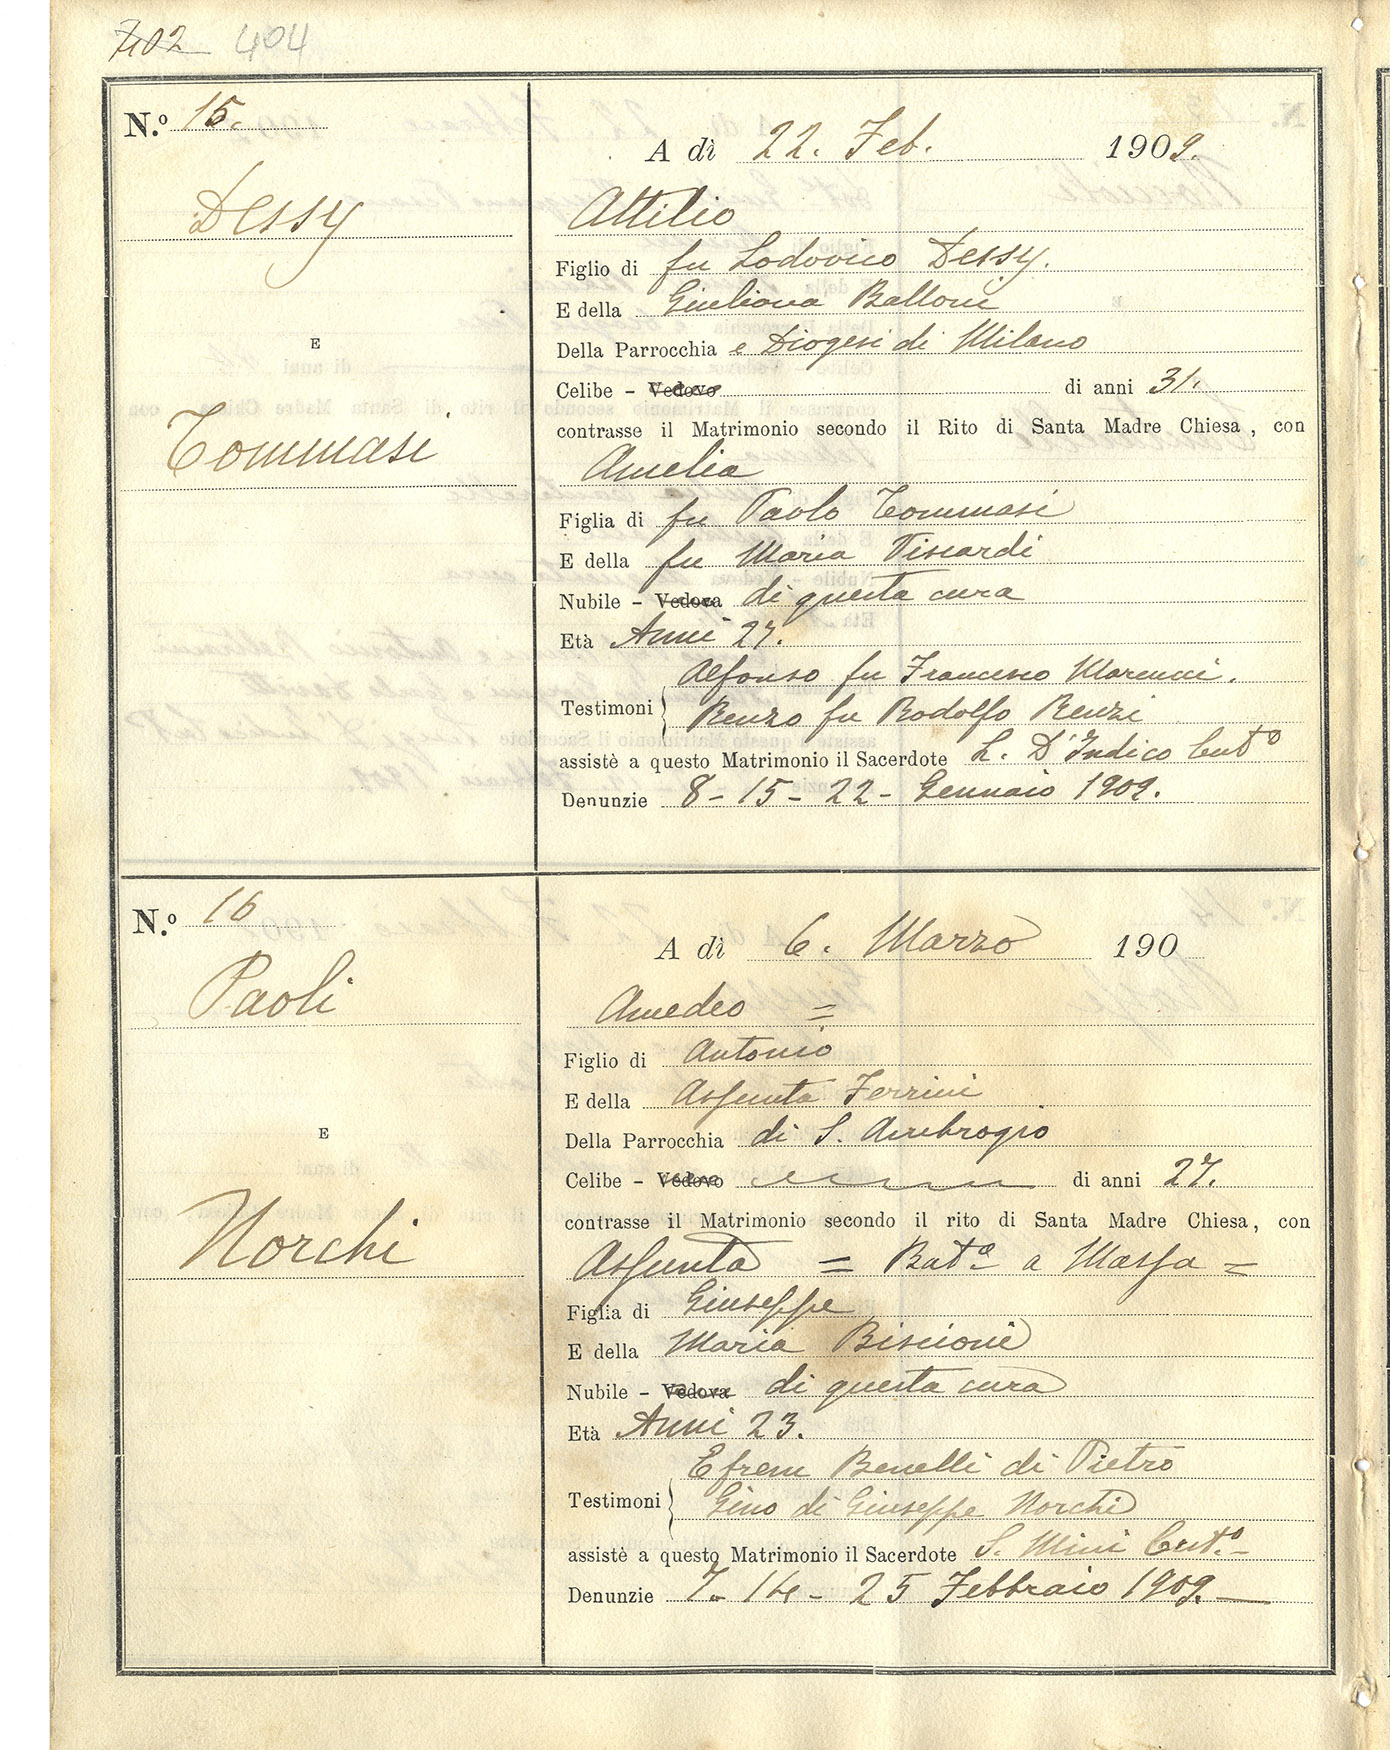 402 404
N.º 15.
A dì 22. Feb. 1909.
Dessy
Attilio
Figlio di fu Lodovico Dessy.
E della Giuliana Balloni
E
Della Parrocchia e Diogesi di Milano
Celibe - Vedovo di anni 31.
contrasse il Matrimonio secondo il Rito di Santa Madre Chiesa, con
Tommasi
Amelia
Figlia di fu Paolo Tommasi
E della fu Maria Viscardi
Nubile - Vedova di questa cura
Età Anni 27.
Alfonso fu Francesco Marcucci.
Testimoni
Renzo fu Rodolfo Renzi
assistè a questo Matrimonio il Sacerdote L. D'Indico Cutº
Denunzie 8 - 15 - 22 - Gennaio 1909.
N.º 16
A dì 6. Marzo 190
Paoli
Amedeo =
Figlio di Antonio
E della Assunta Ferrini
E
Della Parrocchia di S. Ambrogio
Celibe - Vedovo di anni 27.
contrasse il Matrimonio secondo il rito di Santa Madre Chiesa, con
Norchi
Assunta = Batª a Massa =
Figlia di Giuseppe
E della Maria Biscioni
Nubile - Vedova di questa cura
Età Anni 23.
Efrem Benelli di Pietro
Testimoni
Gino di Giuseppe Norchi
assistè a questo Matrimonio il Sacerdote S. Mini Cut.º -
Denunzie 7. 14 - 25 Febbraio 1909. —